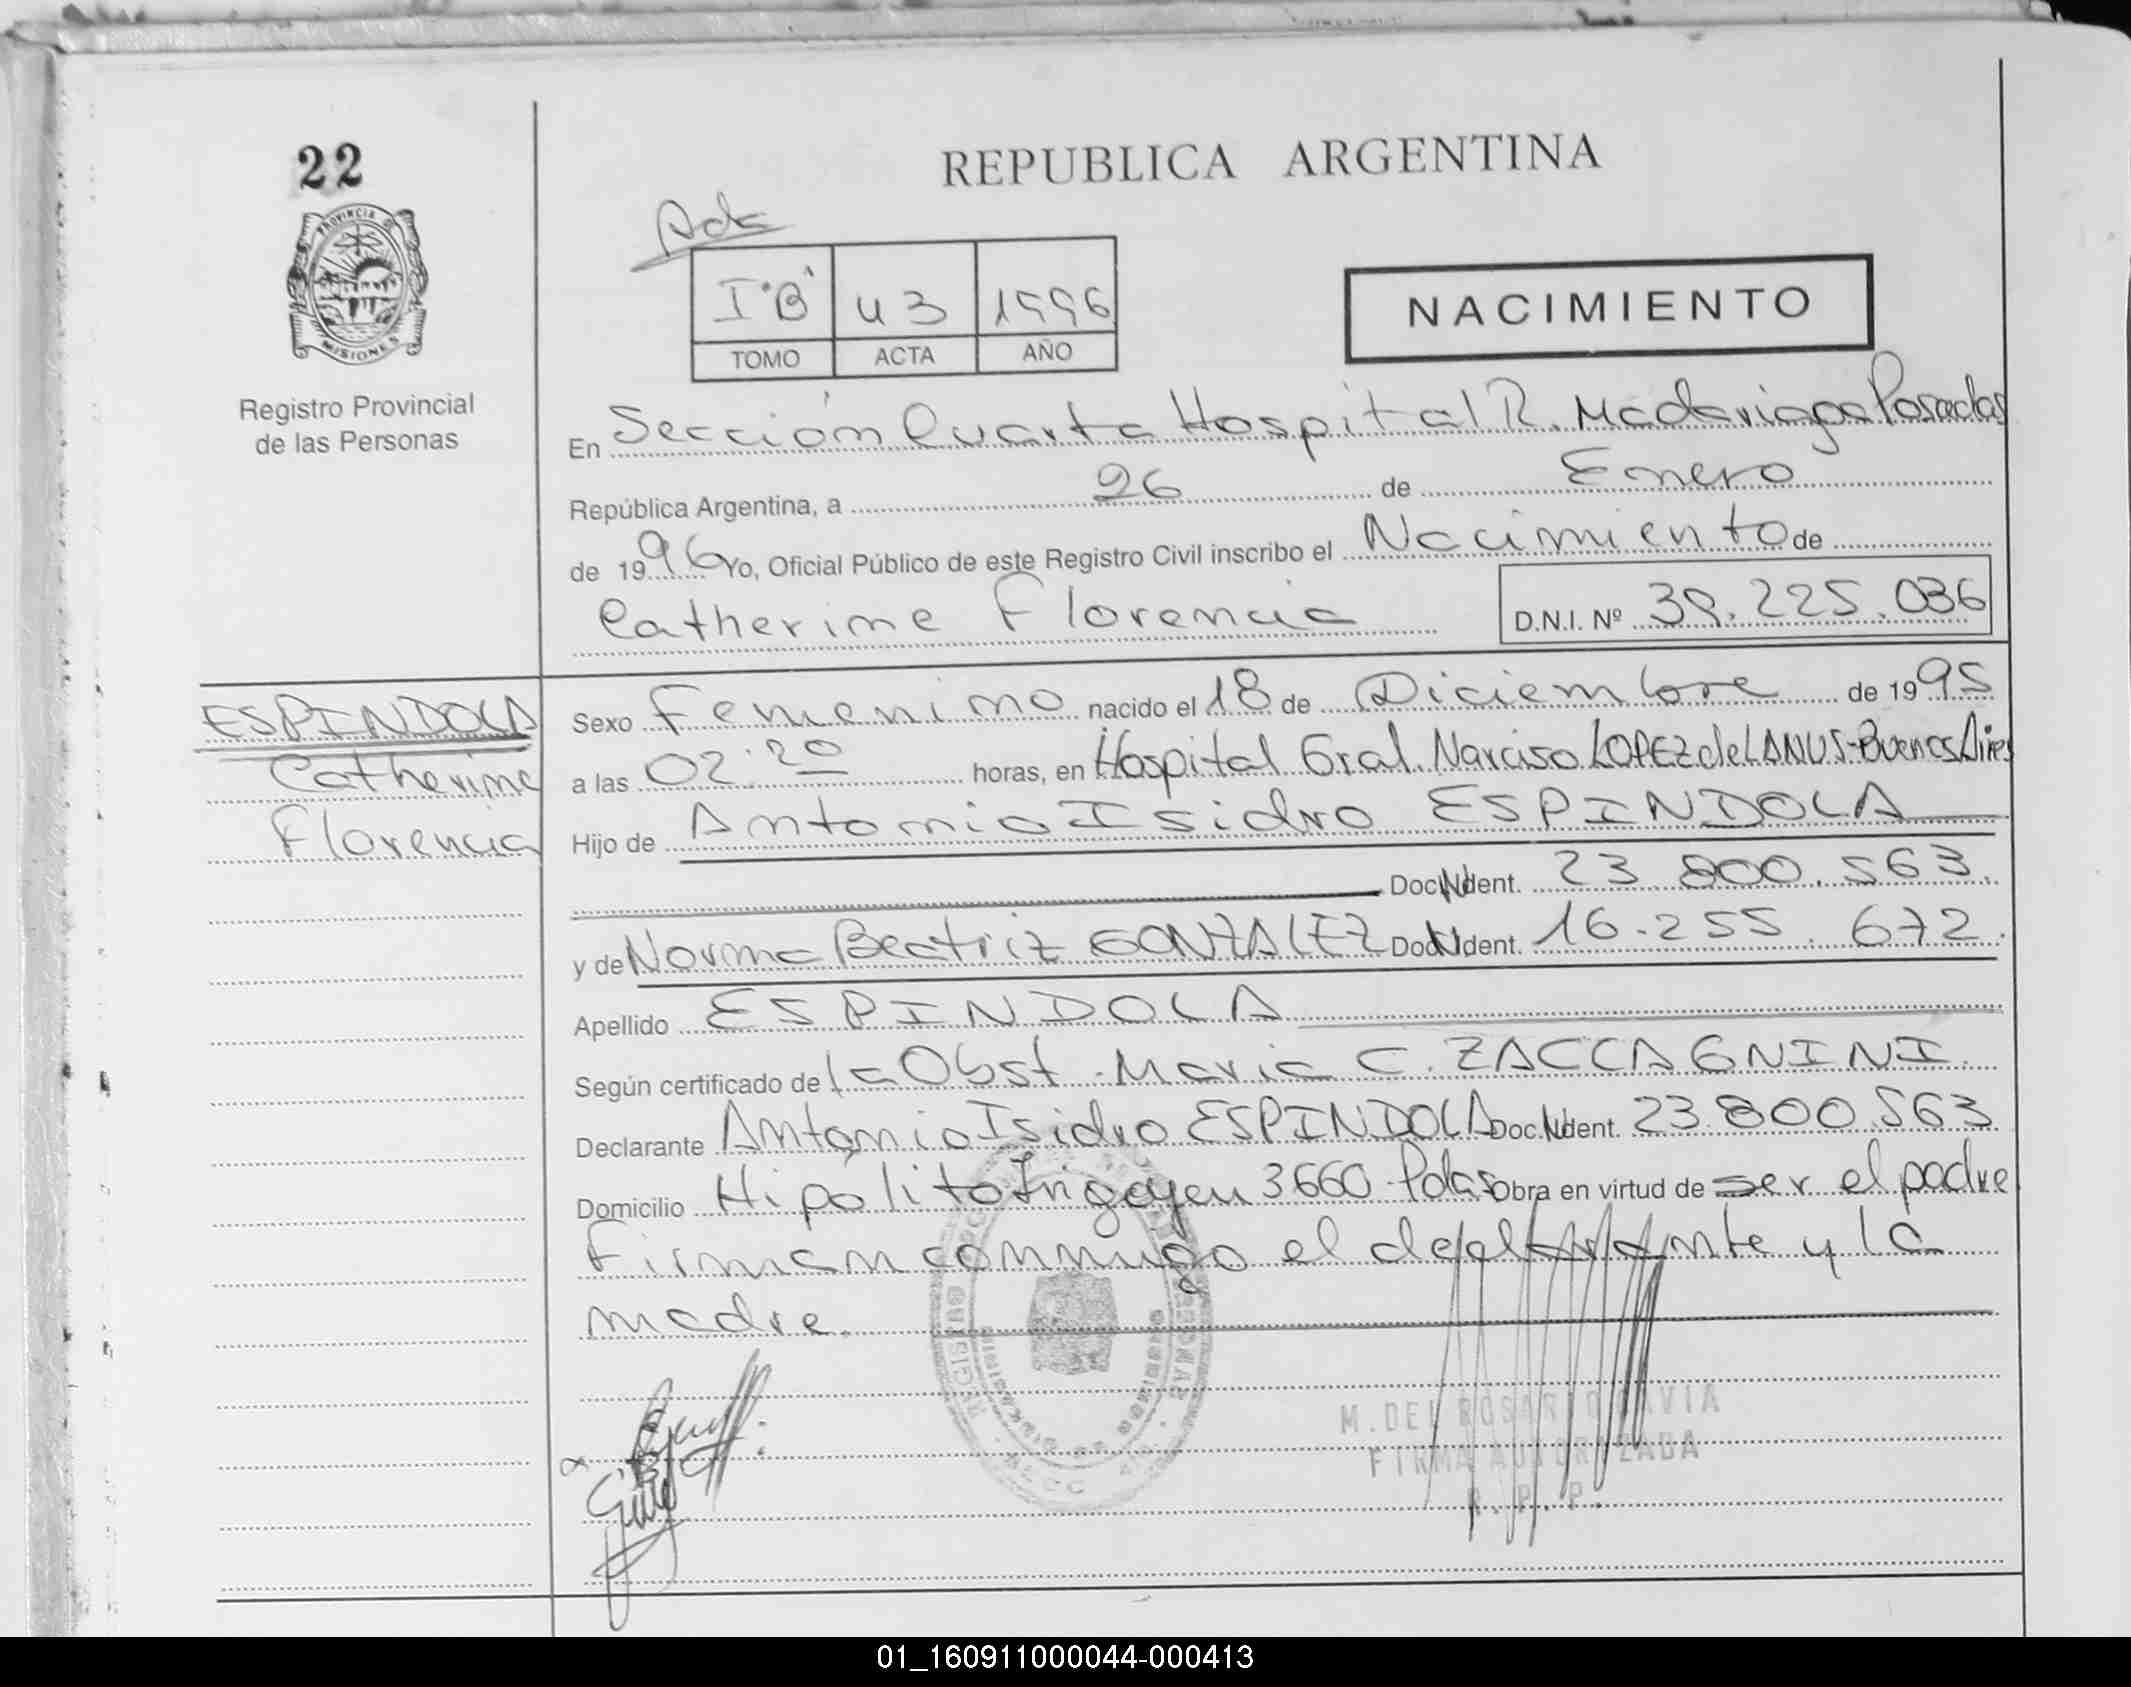 22
REPUBLICA ARGENTINA
PROVINCIA DE
MISIONES
Registro Provincial
de las Personas
I°"B" 43 1996
TOMO ACTA AÑO
NACIMIENTO
En Sección Cuarta Hospital R. Madariaga Posadas
República Argentina, a 26 de Enero
de 1996 Yo, Oficial Público de este Registro Civil inscribo el Nacimiento de
Catherine Florencia D.N.I. Nº 39.225.036
ESPINDOLA
Catherine
Florencia
Sexo Femenino nacido el 18 de Diciembre de 1995
a las 02:20 horas, en Hospital Gral. Narciso LOPEZ de LANUS-Buenos Aires
Hijo de Antonio Isidro ESPINDOLA
Doc. N Ident. 23.800.563.
y de Norma Beatriz GONZALEZ Doc. N Ident. 16.255.672.
Apellido ESPINDOLA
Según certificado de la Obst. Maria C. ZACCAGNINI.
Declarante Antonio Isidro ESPINDOLA Doc. N Ident. 23.800.563
Domicilio Hipólito Irigoyen 3660-Pdas Obra en virtud de ser el padre
Firman conmigo el declarante y la
madre.
M. DEL ROSARIO GAVIA
FIRMA AUTORIZADA
R. P. P.
01_160911000044-000413